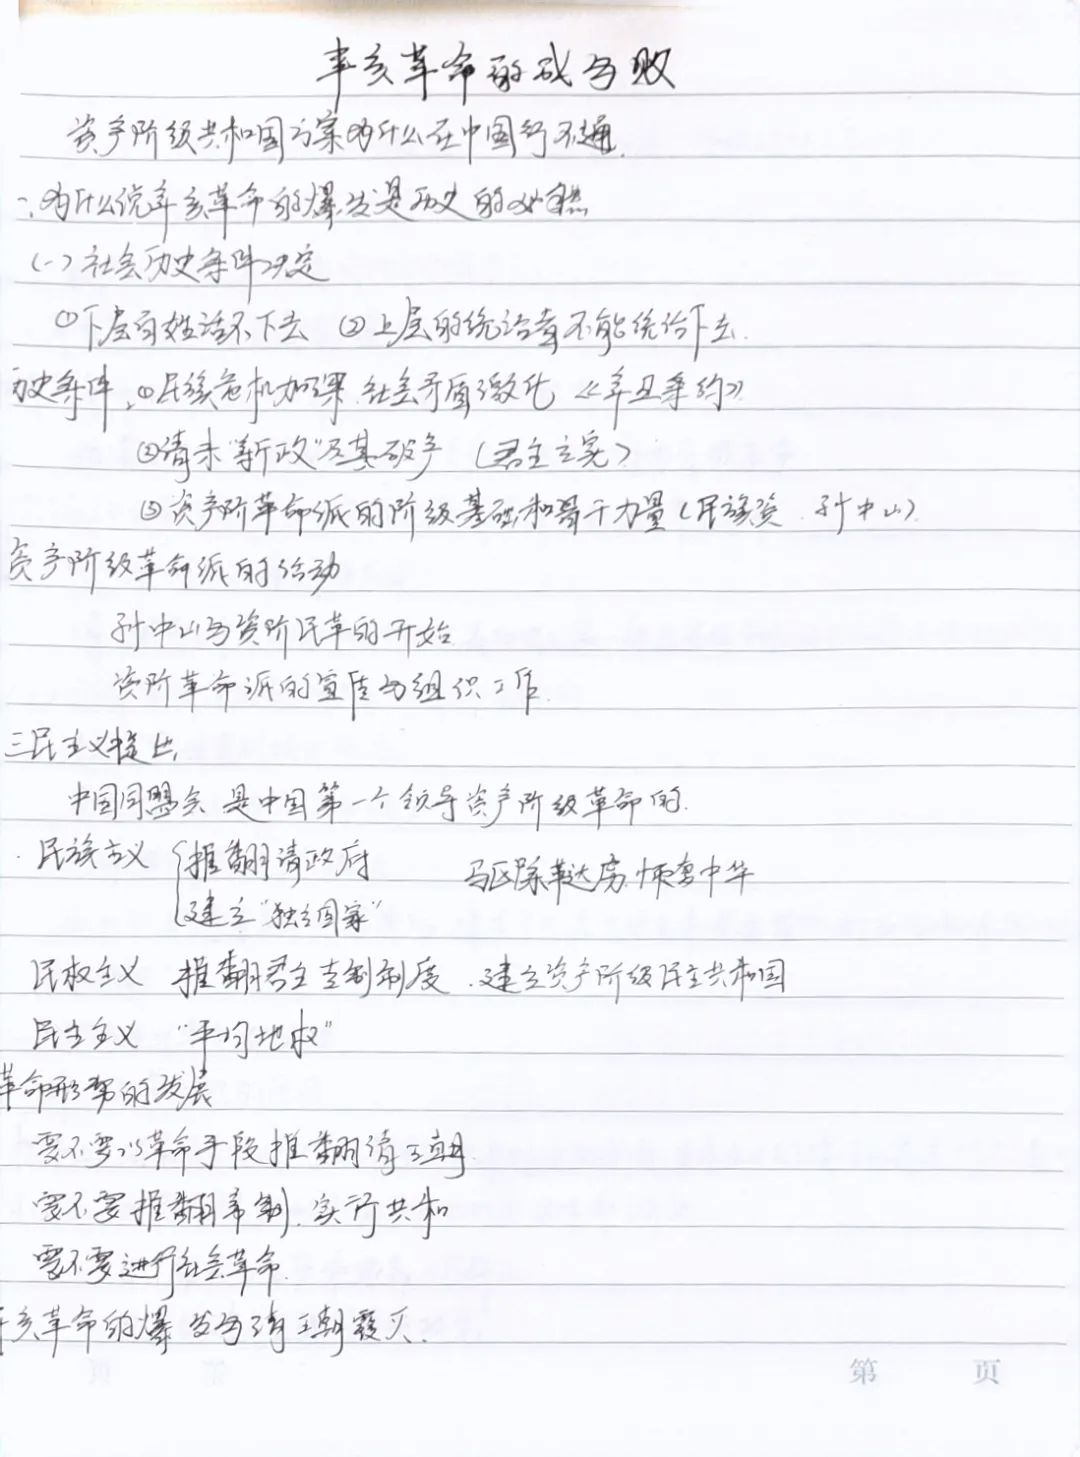 辛亥革命的成与败
资产阶级共和国方案为什么在中国行不通.
一、为什么说辛亥革命的爆发是历史的必然
(一)社会历史条件决定
①下层百姓活不下去 ②上层的统治者不能统治下去.
历史条件,①民族危机加深.社会矛盾激化《辛丑条约》
②清末"新政"及其破产(君主立宪)
③资产阶革命派的阶级基础和骨干力量(民族资.孙中山)
资产阶级革命派的活动
孙中山与资阶民革的开始
资阶革命派的宣传与组织工作.
三民主义提出
中国同盟会是中国第一个领导资产阶级革命的.
民族主义 推翻清政府 驱除鞑虏.恢复中华
建立"独立国家"
民权主义 推翻君主专制制度.建立资产阶级民主共和国
民主主义 "平均地权"
革命形势的发展
要不要以革命手段推翻清王朝.
要不要推翻帝制.实行共和
要不要进行社会革命.
辛亥革命的爆发与清王朝覆灭.
第 页